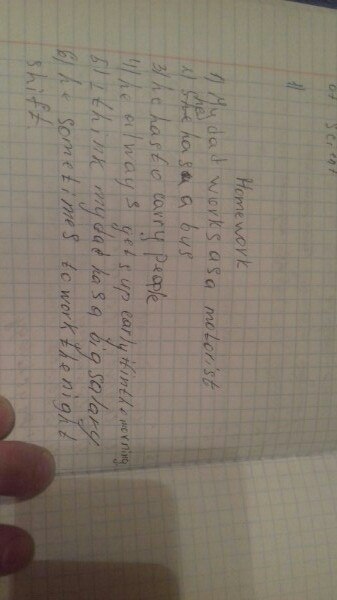 Homework
1) My dad works as a motorist
2) he has a bus
3) he has to carry people
4) he always gets up early in the morning
5) I think my dad has a big salary
6) he sometimes to work the night
shift.
1)